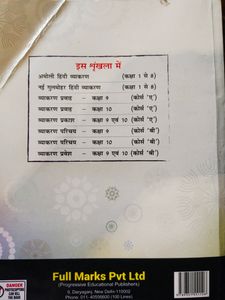 इस शृंखला में
अनोखी हिंदी व्याकरण (कक्षा 1 से 8)
नई गुलमोहर हिंदी व्याकरण (कक्षा 1 से 8)
व्याकरण प्रवाह – कक्षा 9 (कोर्स 'ए')
व्याकरण प्रवाह – कक्षा 10 (कोर्स 'ए')
व्याकरण प्रकाश – कक्षा 9 एवं 10 (कोर्स 'ए')
व्याकरण परिचय – कक्षा 9 (कोर्स 'बी')
व्याकरण परिचय – कक्षा 10 (कोर्स 'बी')
व्याकरण प्रवेश – कक्षा 9 एवं 10 (कोर्स 'बी')
DANGER
Full Marks Pvt Ltd
(Progressive Educational Publishers)
9, Daryaganj, New Delhi-110002